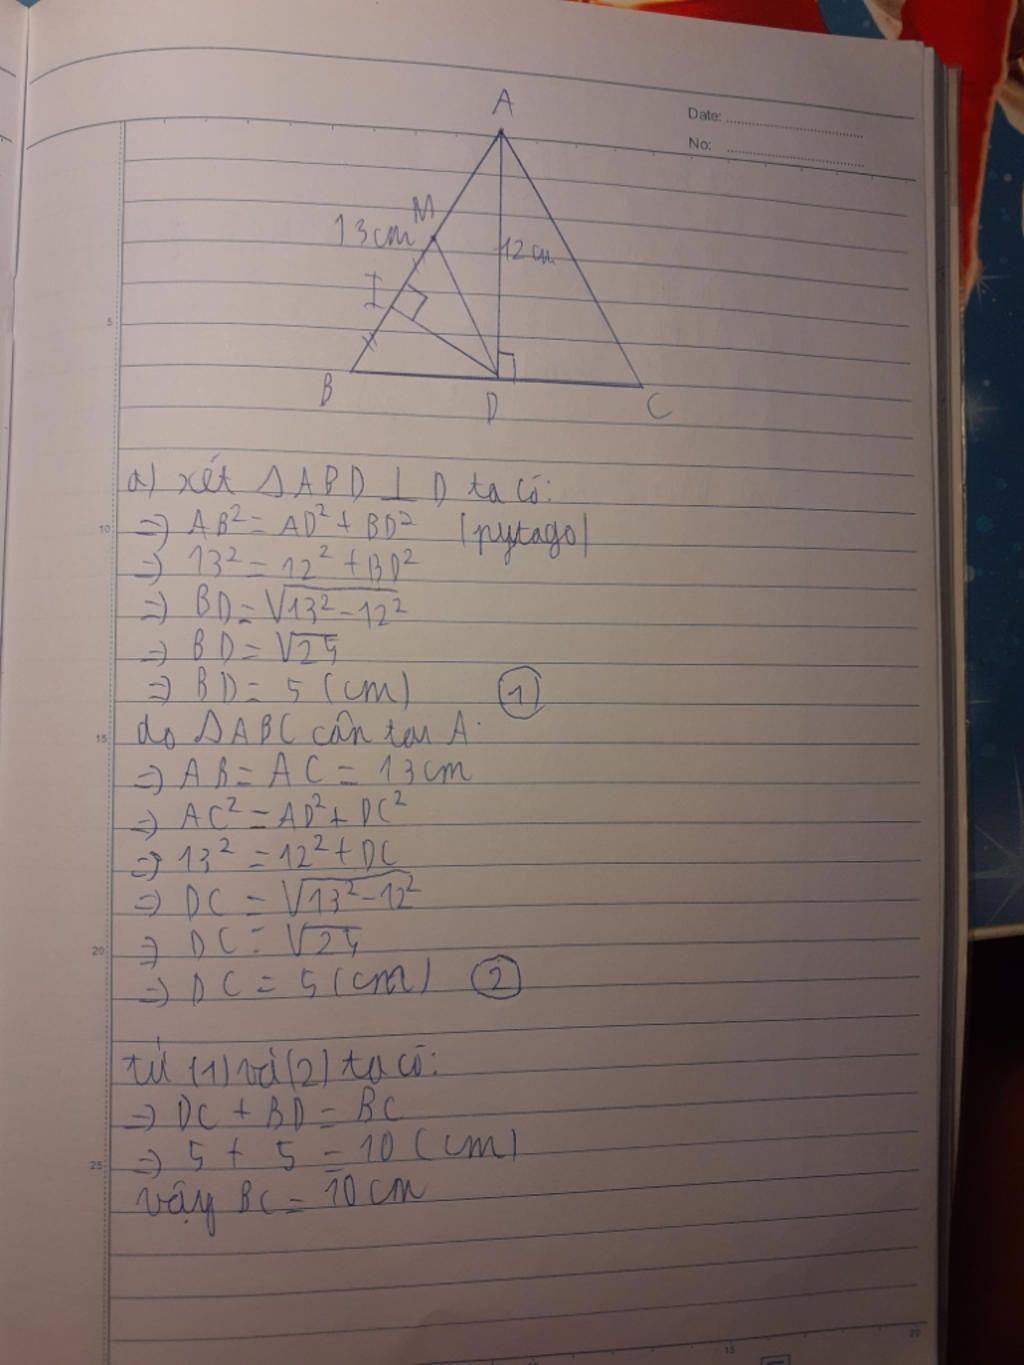 A
Date:
No:
M
13cm
12cm
I
B
D
C
5
a) xét ΔABD ⊥ D ta có:
10
=> AB² = AD² + BD² (pytago)
=> 13² = 12² + BD²
=> BD = √13² - 12²
=> BD = √25
=> BD = 5 (cm) (1)
15
do ΔABC cân tại A
=> AB = AC = 13cm
=> AC² = AD² + DC²
=> 13² = 12² + DC
=> DC = √13² - 12²
20
=> DC = √25
=> DC = 5 (cm) (2)
từ (1) và (2) ta có:
=> DC + BD = BC
25
=> 5 + 5 = 10 (cm)
vậy BC = 10cm
15
20